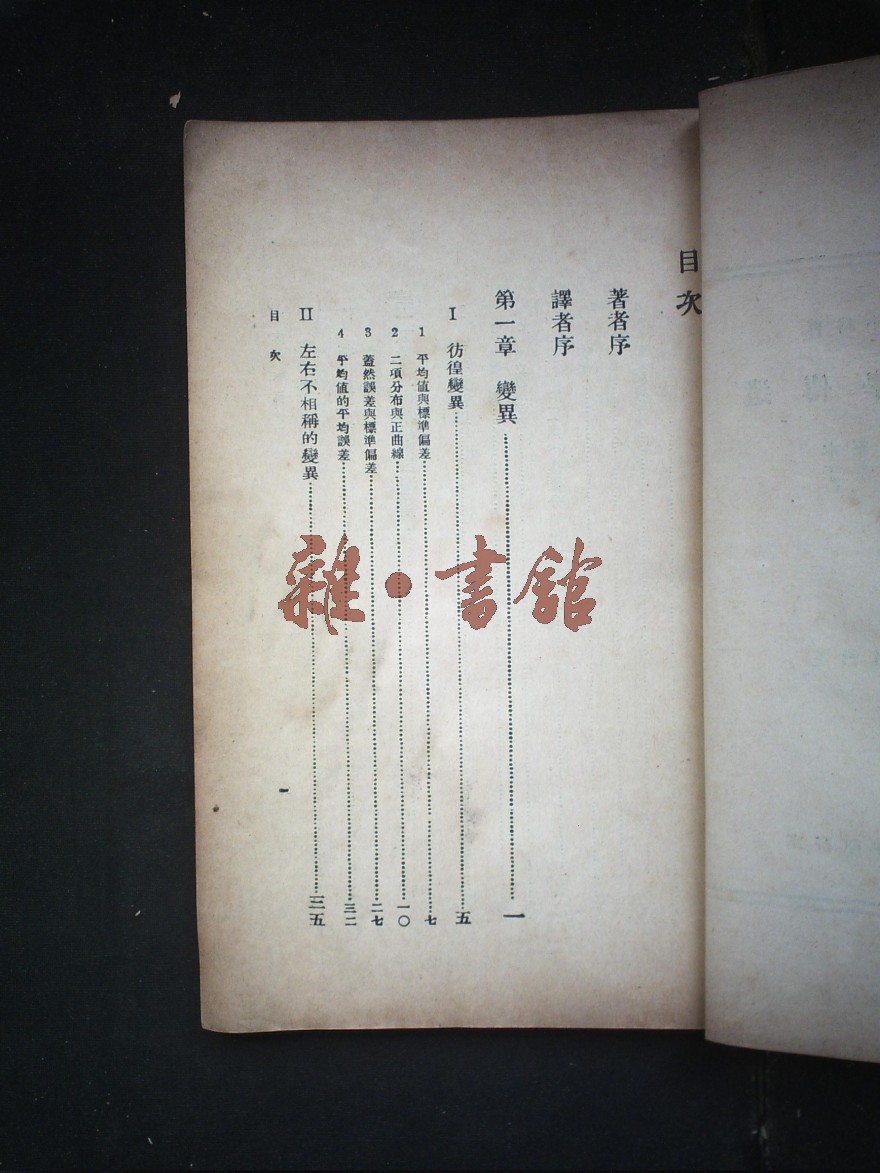 目次
著者序
譯者序
第一章 變異……一
I 彷徨變異……五
1 平均値與標準偏差……七
2 二項分布與正曲線……一〇
3 蓋然誤差與標準偏差……二七
4 平均値的平均誤差……三二
II 左右不相稱的變異……三五
目次 一
雜·書館